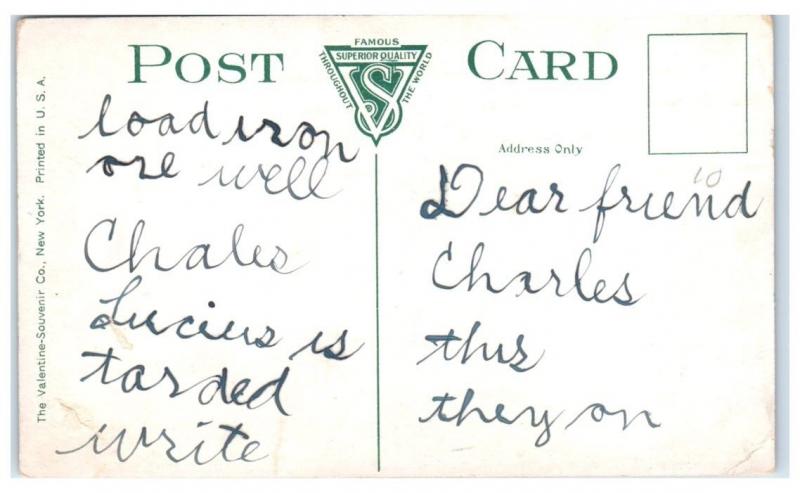 POST CARD
FAMOUS
SUPERIOR QUALITY
THROUGHOUT
THE WORLD
VS
Address Only
The Valentine-Souvenir Co., New York. Printed in U. S. A.
load iron
ore well
Chales
Lucius is
tarded
write
10
Dear friend
Charles
this
they on